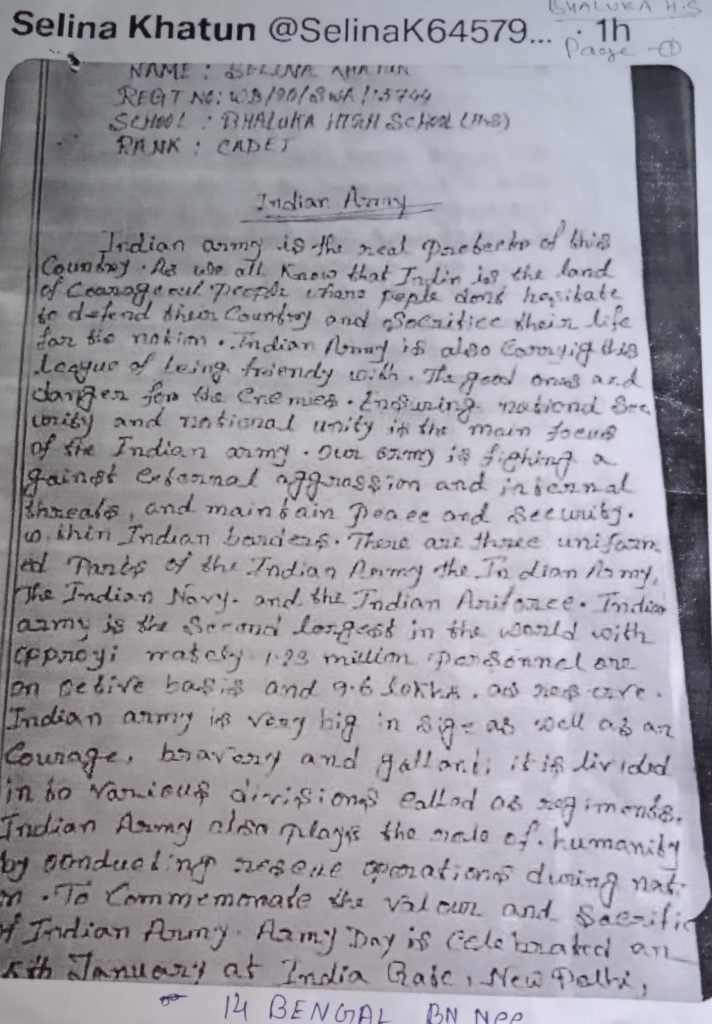 BHALUKA H.S
Selina Khatun @SelinaK64579... · 1h
Page - ①
NAME : SELINA KHATUN
REGT NO: WB/20/SWA/
SCHOOL : BHALUKA HIGH SCHOOL (H.S)
RANK : CADET
Indian Army
Indian army is the real protector of this
Country. As we all know that India is the land
of Courageoul people whans peple dont hesitate
to defend their Country and Socrifice their life
for the notion. Indian Army is also Carryig this
league of being friendly with. The good ones and
danger for the Enemies. Ensuring nationd Sec
urity and national unity is the main focus
of the Indian army. Our army is fighing a
gainst external aggression and internal
threats, and maintain Peace and Security.
within Indian borders. There are three uniform
ed Parts of the Indian Army the Indian Army,
The Indian Navy. and the Indian Airforce. Indian
army is the Second longest in the world with
1.23 million Personnel are
on active basis and 9.6 lakha. as reserve.
Indian army is very big in size as well as an
Courage, bravery and gallant; it is divided
in to various divisions called as regiments.
Indian Army also plays the role of. humanity
by conducting rescue operations during nat
n. To Commemorate the valour and Sacrific
of Indian Army. Army Day is Celebrated an
January at India Gate, New Delhi,
14 BENGAL BN NCC